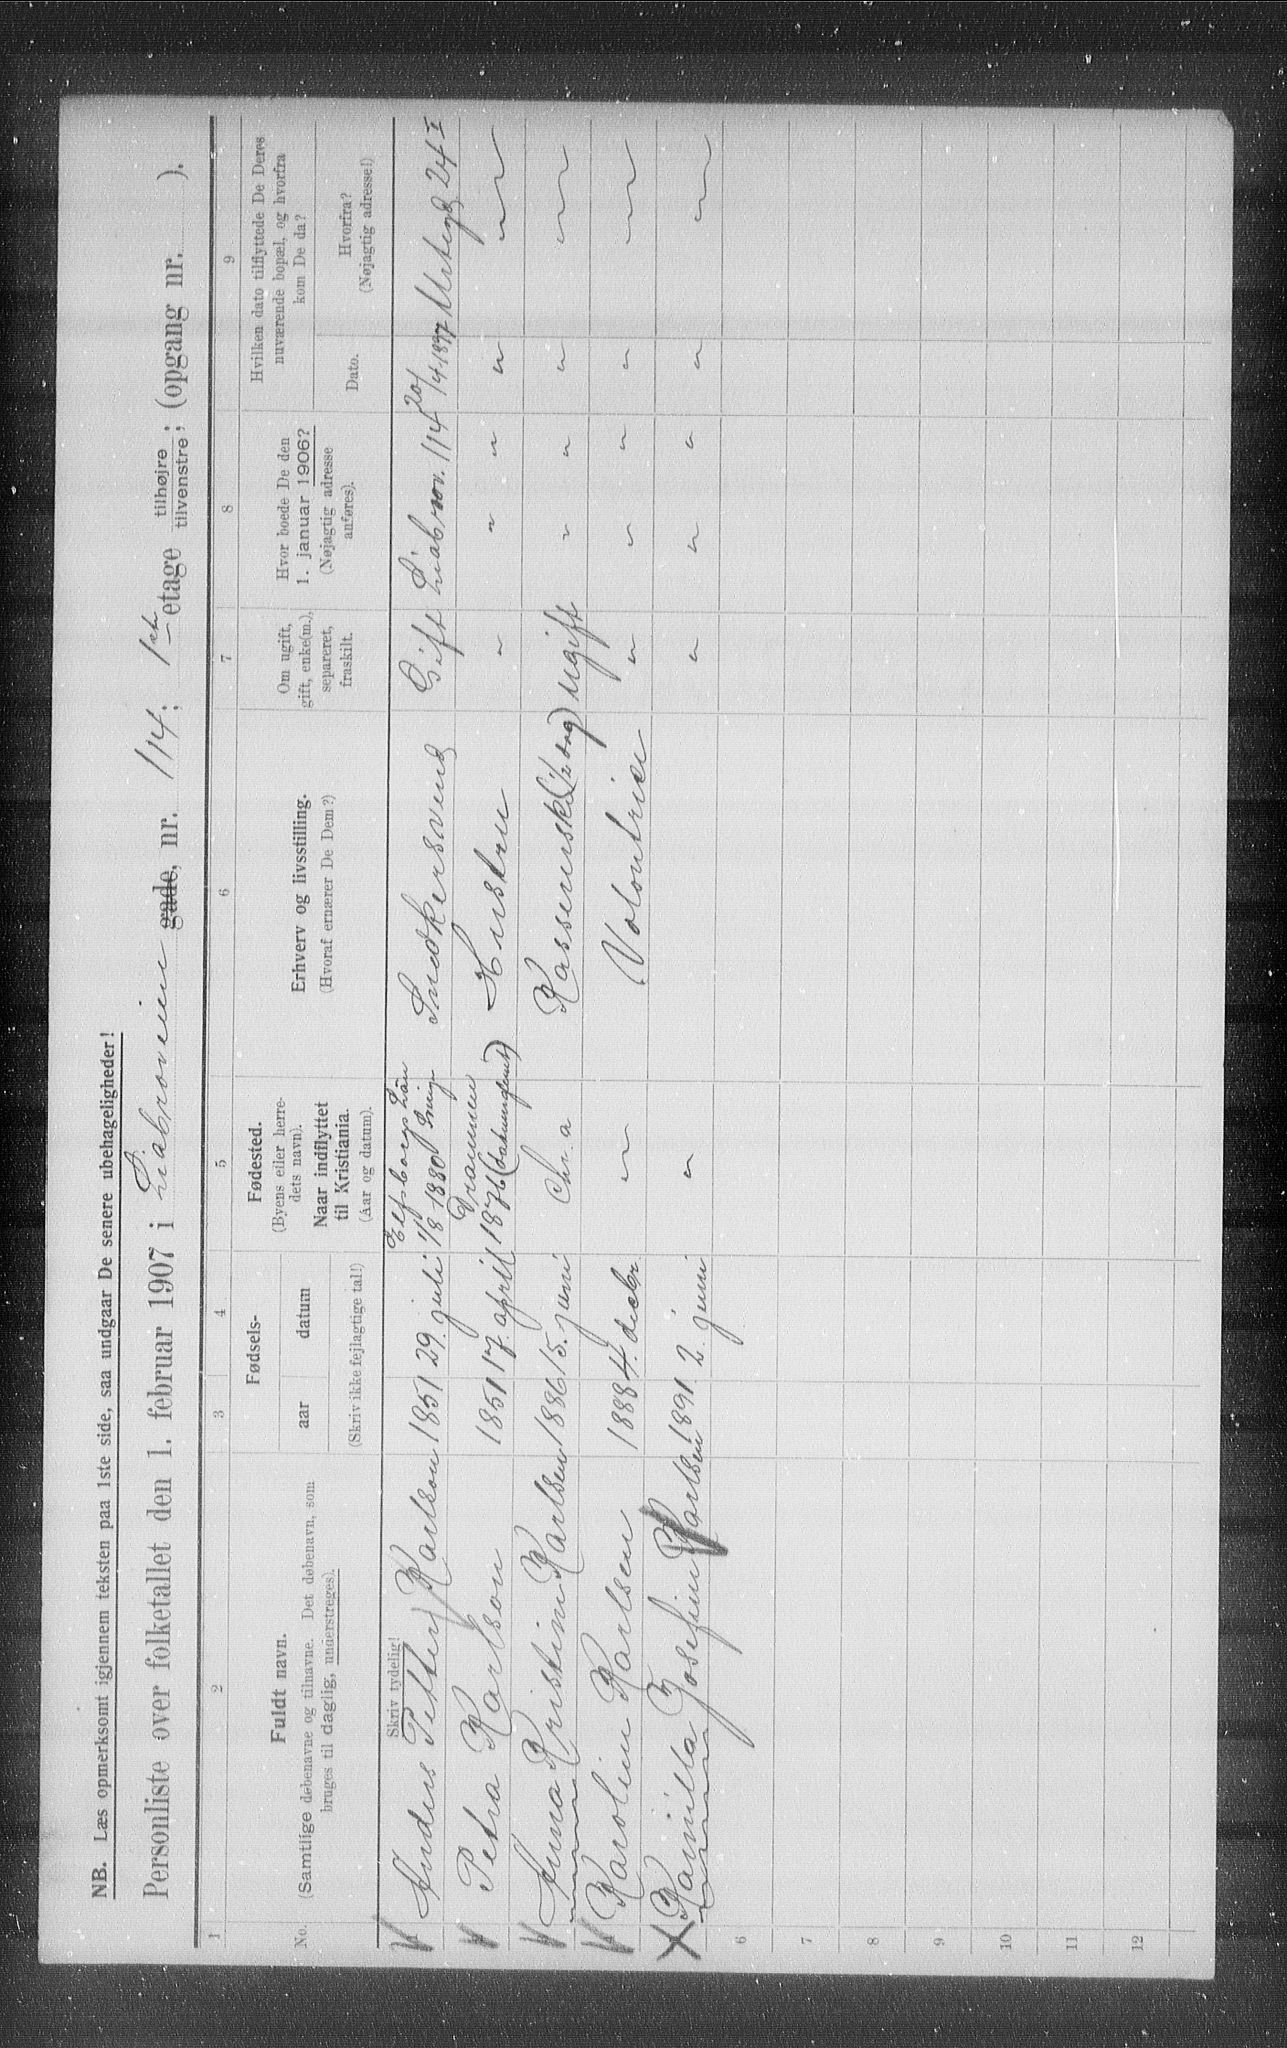 NB. Læs opmerksomt igjennem teksten paa 1ste side, saa undgaar De senere ubehageligheder!
Personliste over folketallet den 1. februar 1907 i Liabroveien gade, nr. 114; 1ste etage tilhøjre tilvenstre; (opgang nr. ).
1 2 3 4 5 6 7 8 9
No.
Fuldt navn.
(Samtlige døbenavne og tilnavne. Det døbenavn, som
bruges til daglig, understreges).
Skriv tydelig!
Fødsels-
aar datum
(Skriv ikke fejlagtige tal!)
Fødested.
(Byens eller herre-
dets navn).
Naar indflyttet
til Kristiania.
(Aar og datum).
Erhverv og livsstilling.
(Hvoraf ernærer De Dem?)
Om ugift,
gift, enke(m.),
separeret,
fraskilt.
Hvor boede De den
1. januar 1906?
(Nøjagtig adresse
anføres).
Hvilken dato tilflyttede De Deres
nuværende bopæl, og hvorfra
kom De da?
Dato.
Hvorfra?
(Nøjagtig adresse!)
Elfsborgs Län
Anders Petter Karlson 1851 29. juli 1/8 1880 Snedkersvend Gift Liabrov. 114 20/4 1897 Urtegd 24 I
Drammen
Petra Karlson 1851 17. april 1876 Hustru " " " " "
Anna Kristine Karlsen 1886 15. juni Chr.a Kassererske Ugift " " " "
Karoline Karlsen 1888 4. decbr. " Volontrice " " " " "
Kamilla Josefine Karlsen 1891 2. juni " " " " " "
6
7
8
9
10
11
12